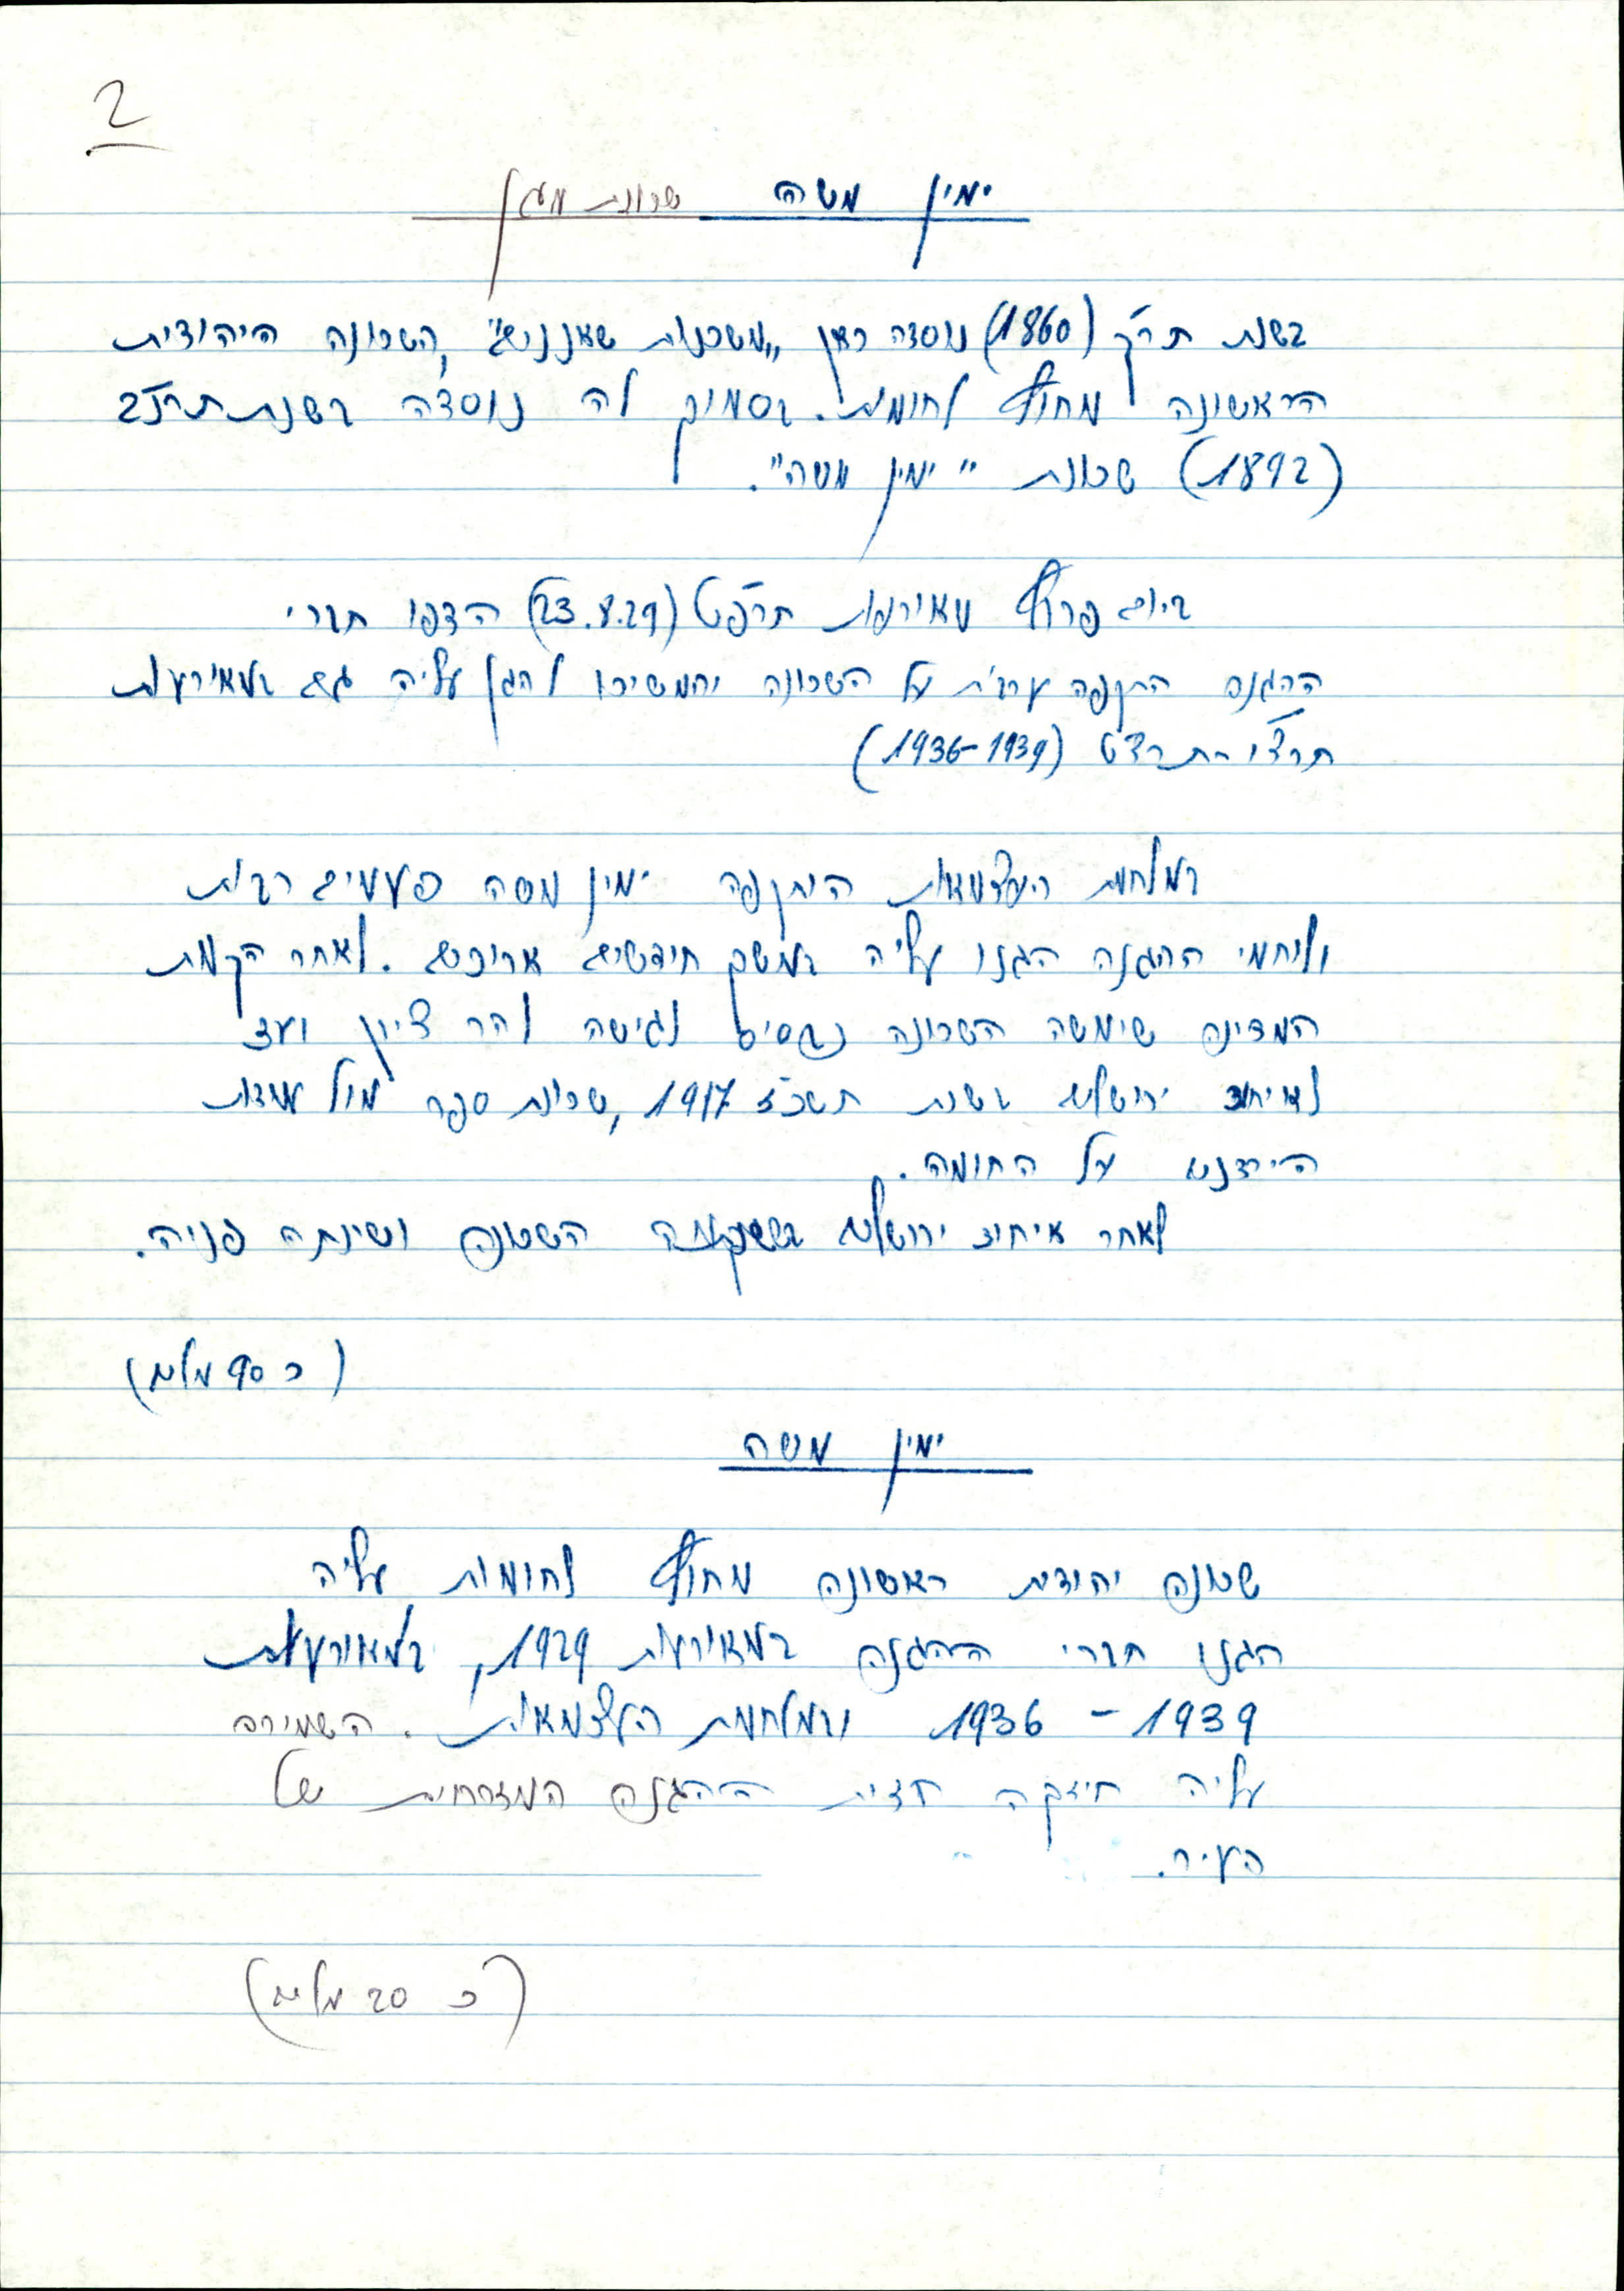 2
ימין משה שכונת מגן
בשנת תר"ך (1860) נוסדה כאן "משכנות שאננים", השכונה היהודית
הראשונה מחוץ לחומות. בסמוך לה נוסדה בשנת תרנ"ב
(1892) שכונת "ימין משה".
ביום פרוץ מאורעות תרפ"ט (23.8.29) הדפו חברי
ההגנה התקפה ערבית על השכונה והמשיכו להגן עליה גם במאורעות
תרצ"ו-תרצ"ט (1936-1939)
במלחמת העצמאות הותקפה ימין משה פעמים רבות
ולוחמי ההגנה הגנו עליה במשך חודשים ארוכים. לאחר הקמת
המדינה שימשה השכונה כבסיס לגישה להר ציון ועד
לאיחוד ירושלים בשנת תשכ"ז 1967, שכונת ספר מול עמדות
הירדנים על החומה.
לאחר איחוד ירושלים השכונה ושינתה פניה.
(כ 90 מלים)
ימין משה
שכונה יהודית ראשונה מחוץ לחומות עליה
הגנו חברי ההגנה במאורעות 1929, במאורעות
1936 - 1939 ובמלחמת העצמאות. השמירה
עליה חיזקה חזית ההגנה המזרחית של
העיר.
(כ 20 מלים)